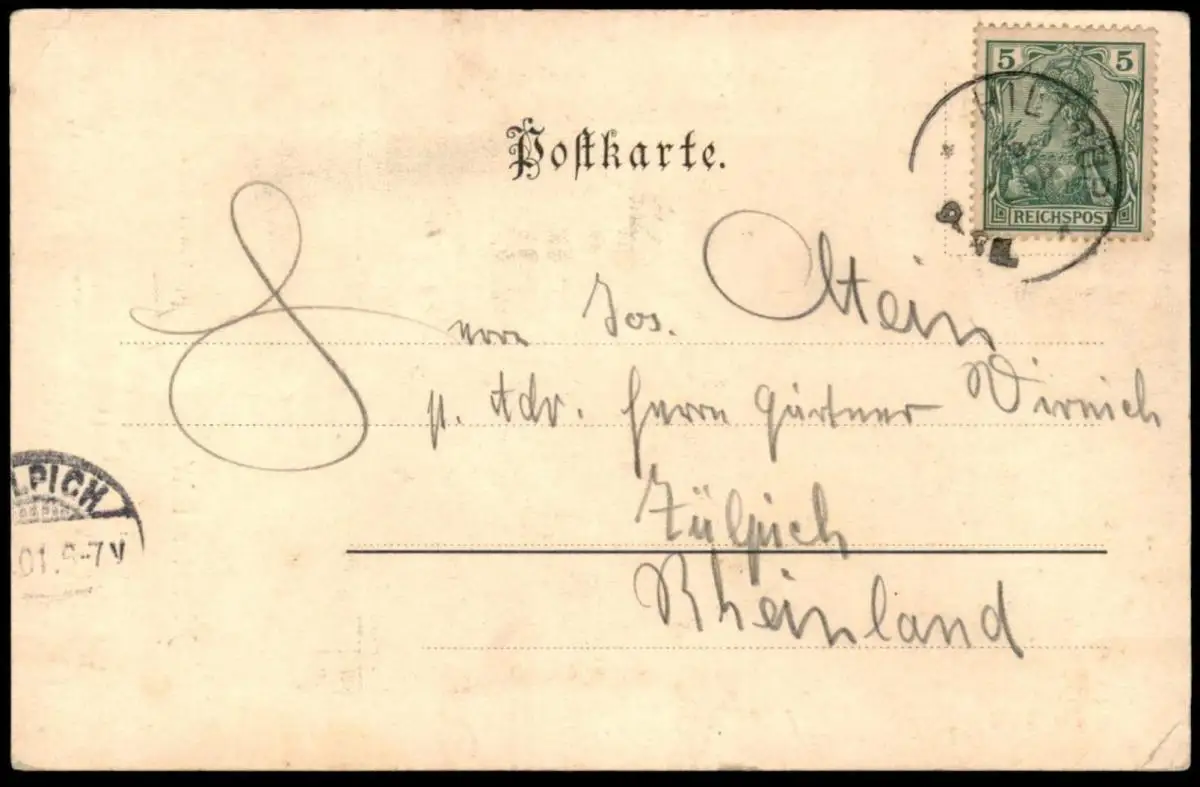 5 5
REICHSPOST
Postkarte.
Herrn Jos. Stein
p. Adr. Herrn Gärtner Wirnich
Zülpich
Rheinland
LPICH
01. 6-7V